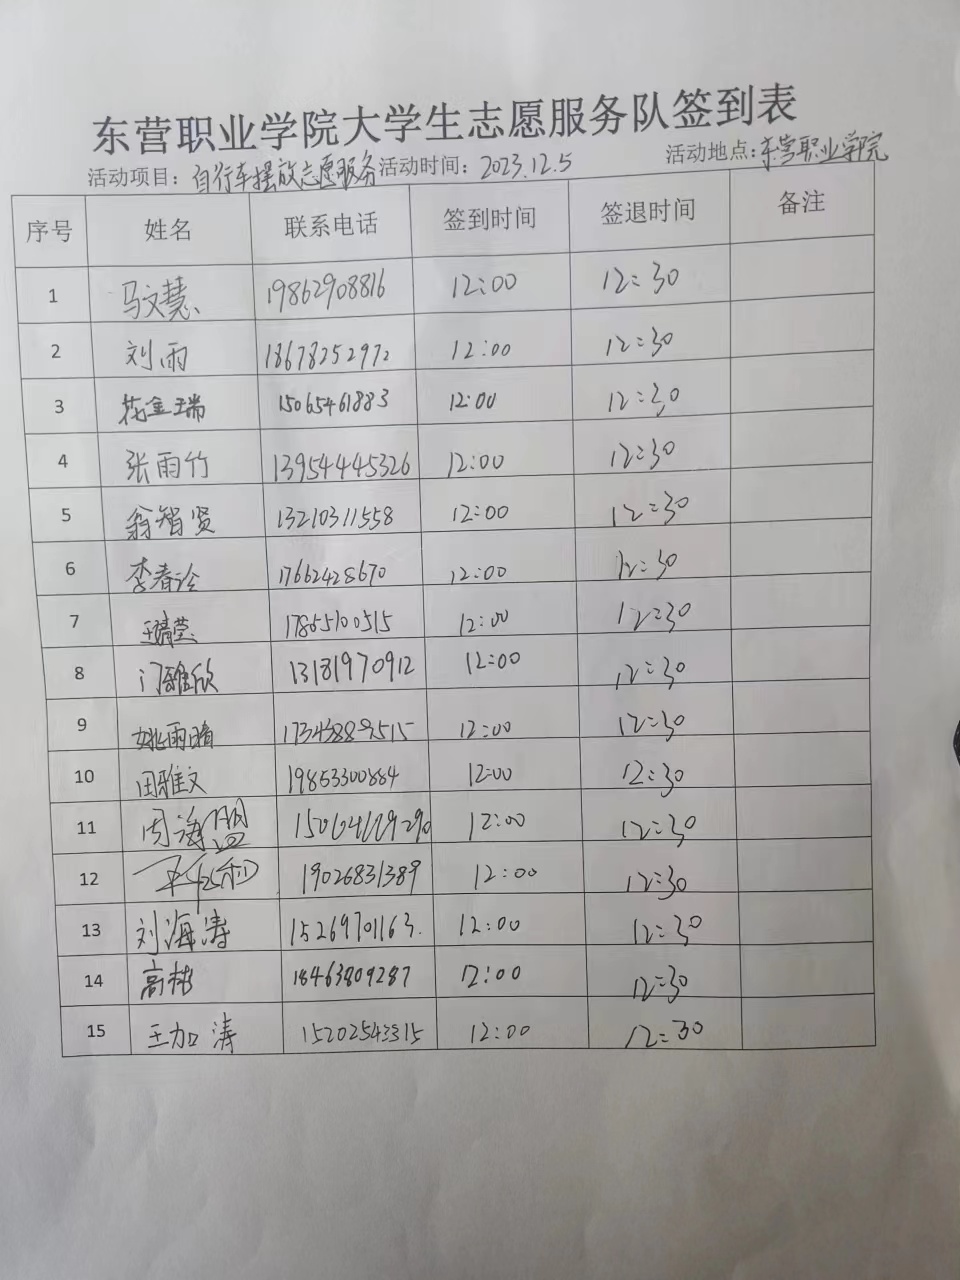 东营职业学院大学生志愿服务队签到表
活动项目：自行车摆放志愿服务 活动时间：2023.12.5 活动地点：东营职业学院
序号 姓名 联系电话 签到时间 签退时间 备注
1 马文慧 19862908816 12:00 12:30
2 刘雨 18678252972 12:00 12:30
3 花金瑞 15065461883 12:00 12:30
4 张雨竹 13954445326 12:00 12:30
5 翁智贤 13210311558 12:00 12:30
6 李春诊 17662428670 12:00 12:30
7 王婧莹 17865100515 12:00 12:30
8 门雅欣 13181970912 12:00 12:30
9 姚雨晴 12:00 12:30
10 田雅文 19853300884 12:00 12:30
11 周海盟 12:00 12:30
12 19026831389 12:00 12:30
13 刘海涛 15269701163. 12:00 12:30
14 高彬 18463809287 12:00 12:30
15 王加涛 15202543315 12:00 12:30